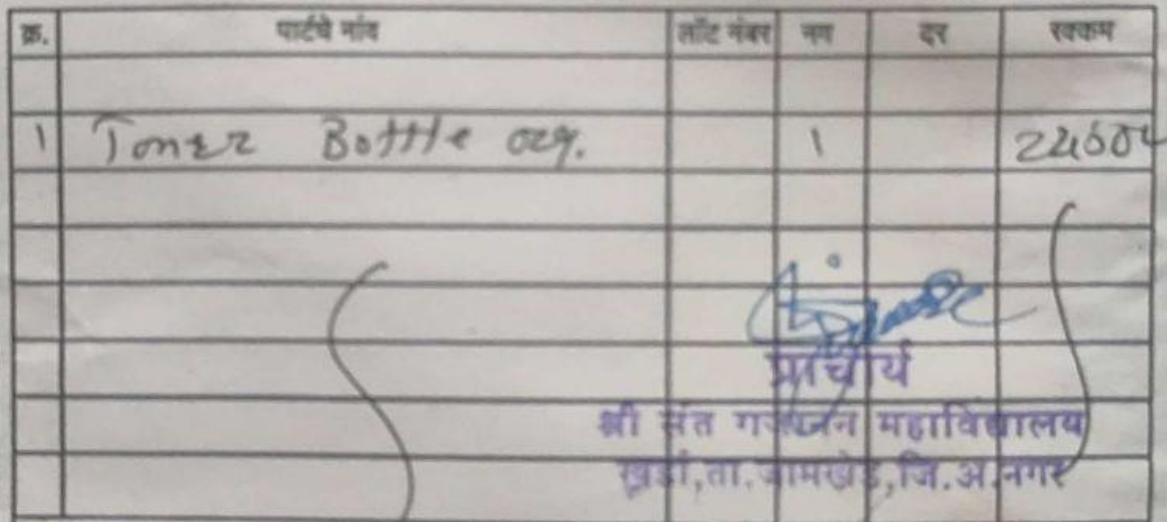 क्र. पार्टचे नांव लॉट नंबर नग दर रक्कम
1 Toner Bottle org. 1
प्राचार्य
श्री संत गजानन महाविद्यालय
खर्डा,ता.जामखेड,जि.अ.नगर